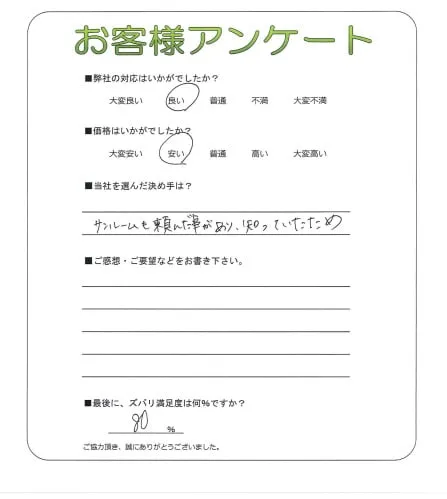 お客様アンケート
■弊社の対応はいかがでしたか？
大変良い 良い 普通 不満 大変不満
■価格はいかがでしたか？
大変安い 安い 普通 高い 大変高い
■当社を選んだ決め手は？
サンルームも頼んだ事があり、知っていたため
■ご感想・ご要望などをお書き下さい。
■最後に、ズバリ満足度は何％ですか？
80 ％
ご協力頂き、誠にありがとうございました。